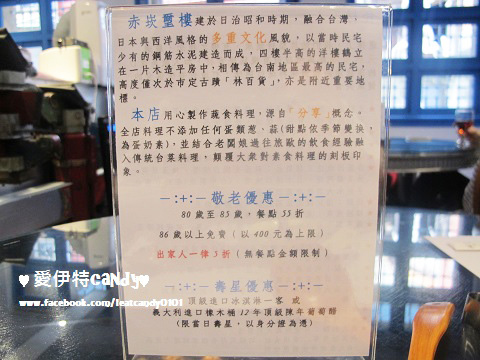 赤崁璽樓建於日治昭和時期，融合台灣，
日本與西洋風格的多重文化風貌，以當時民宅
少有的鋼筋水泥建造而成，四樓半高的洋樓鶴立
在一片木造平房中，相傳為台南地區最高的民宅，
高度僅次於市定古蹟「林百貨」，亦是附近重要地
標。
本店用心製作蔬食料理，源自「分享」概念。
全店料理不添加任何蛋類蔥、蒜(甜點依季節變換，
為蛋奶素)，並結合老闆娘過往旅歐的飲食經驗融
入傳統台菜料理，顛覆大眾對素食料理的刻板印
象。
－:+:－ 敬老優惠 －:+:－
80 歲至 85 歲，餐點 55 折
86 歲以上免費（以 400 元為上限）
出家人一律 5 折（無餐點金額限制）
－:+:－ 壽星優惠 －:+:－
頂級進口冰淇淋一客 或
義大利進口橡木桶 12 年頂級陳年葡萄醋
(限當日壽星，以身分證為憑)
♥愛伊特candy♥
www.facebook.com/Ieatcandy0101